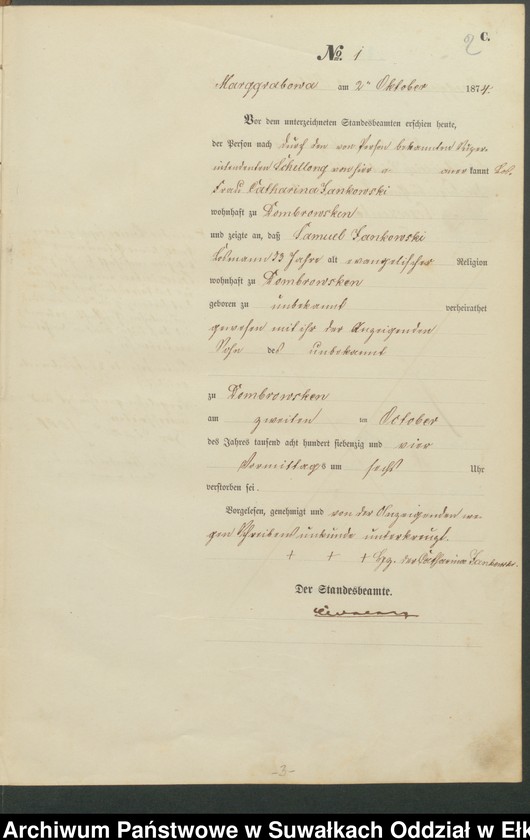 2 C.
No. 1
Marggrabowa am 2ten Oktober 1874.
Vor dem unterzeichneten Standesbeamten erschien heute,
der Person nach durch den von Person bekannten Super-
intendenten Schellong von hier anerkannt
Frau Catharina Jankowski
wohnhaft zu Dombrowsken
und zeigte an, daß Samuel Jankowski
Losmann 33 Jahre alt evangelischer Religion
wohnhaft zu Dombrowsken
geboren zu unbekannt verheirathet
gewesen mit ihr der Anzeigenden
Sohn des unbekannt
zu Dombrowsken
am zweiten ten October
des Jahres tausend acht hundert siebenzig und vier
Vormittags um sechs Uhr
verstorben sei.
Vorgelesen, genehmigt und von der Anzeigenden we-
gen Schreibensunkunde unterkreuzt.
+ + + Hz. der Catharina Jankowski.
Der Standesbeamte.
-3-
Archiwum Państwowe w Suwałkach Oddział w Ełk